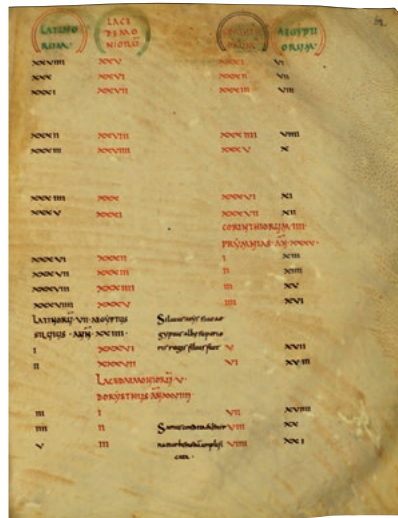 LATINO LACE CORINTHI AEGYPTI
RUM· DEMO ORUM ORUM·
NIORŪ
XXVIIII XXV XXXI VI
XXX XXVI XXXII VII
XXXI XXVII XXXIII VIII
XXXII XXVIII XXXIIII VIIII
XXXIII XXVIIII XXXV X
XXXIIII XXX XXXVI XI
XXXV XXXI XXXVII XII
CORINTHIORUM IIII·
PRYMNIAS· AN̄ XXXV·
XXXVI XXXII I XIII
XXXVII XXXIII II XIIII
XXXVIII XXXIIII III XV
XXXVIIII XXXV IIII XVI
LATINORŪ· VII· AEGYPTUS
SILUIUS· ANN̄· XXIIII·
I XXXVI V XVII
II XXXVII VI XVIII
LACEDAEMONIORŪ V·
DORYSTHUS AN̄
III I VII XVIIII
IIII II VIII XX
V III VIIII XXI